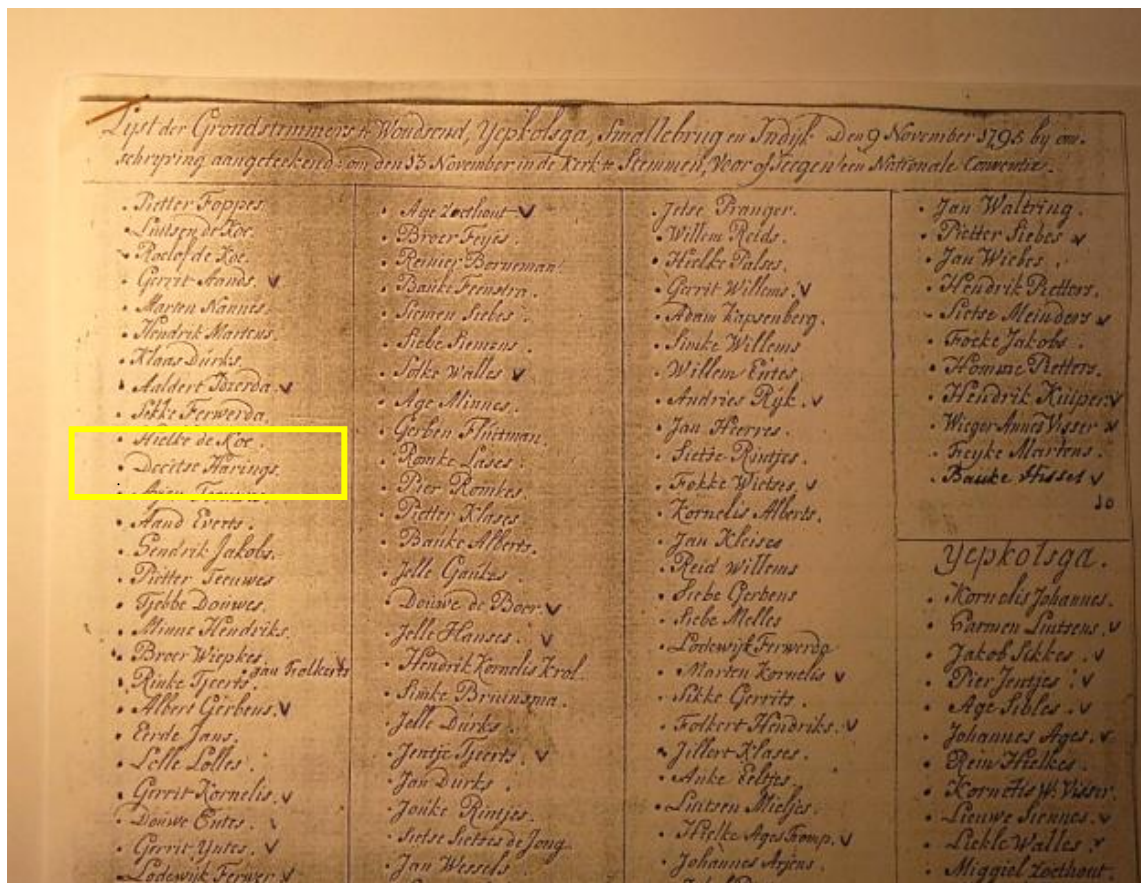 Lyst der Grondstemmers te Woudsend, Yepkolsga, Smallebrug en Indyk Den 9 November 1795 by om-
schryving aangeteekend: om den 13 November in de Kerk te Stemmen, Voor of Teegen een Nationale Conventie.
Pietter Foppes.
Luitsen de Koe.
Roelof de Koe.
Gerrit Aands. v
Marten Nannes.
Hendrik Martens.
Klaas Durks.
Aaldert Ybzerda. v
Sekke Ferwerda.
Hielke de Koe.
Deeitse Harings.
Arjen Teeuwes
Aand Everts.
Gendrik Jakobs.
Pietter Teeuwes
Tjebbe Douwes.
Minne Hendriks.
Broer Wiepkes.
Jan Folkerts v
Rinke Tjeerts.
Albert Gerbens. v
Eerde Jans.
Lolle Lolles.
Gerrit Kornelis. v
Douwe Entes. v
Gerrit Yntes. v
Lodewijk Ferwer. v
Age Zoethout v
Broer Feyes.
Reinier Borneman.
Bauke Feenstra.
Siemen Siebes.
Siebe Siemens.
Sölke Walles v
Age Minnes.
Gerben Fluitman.
Romke Lases.
Pier Romkes.
Pietter Klases.
Bauke Alberts.
Jelle Gaukes.
Douwe de Boer. v
Jelle Hanses. v
Hendrik Kornelis Krol.
Simke Bruinsma.
Jelle Durks.
Jentje Tjeerts. v
Jan Durks.
Jouke Rintjes.
Sietse Sietses de Jong.
Jan Wessels.
Jetse Pranger.
Willem Reids.
Hielke Palses.
Gerrit Willems. v
Adam Kapsenberg.
Simke Willems
Willem Entes.
Andries Ryk. v
Jan Hierres.
Sietse Rintjes.
Fokke Wietses. v
Kornelis Alberts.
Jan Kleises
Reid Willems
Siebe Gerbens
Siebe Melles
Lodewijk Ferwerda
Marten Kornelis v
Sikke Gerrits
Folkert Hendriks. v
Jillert Klases.
Anke Eeltjes.
Luitsen Mieljes.
Hielke Ages Tromp. v
Johannes Arjens.
Jan Waltring.
Pietter Siebes v
Jan Wiebes.
Hendrik Pietters.
Sietse Meinders v
Focke Jakobs.
Homme Pietters.
Hendrik Kuiper. v
Wieger Annes Visser v
Feyke Martens.
Bauke Hisses v
10
Yepkolsga.
Kornelis Johannes.
Harmen Luitsens. v
Jakob Sikkes. v
Pier Jentjes. v
Age Sibles. v
Johannes Ages. v
Rein Hielkes.
Kornelis W: Visser.
Lieuwe Siennes. v
Liekle Walles. v
Miggiel Zoethout.